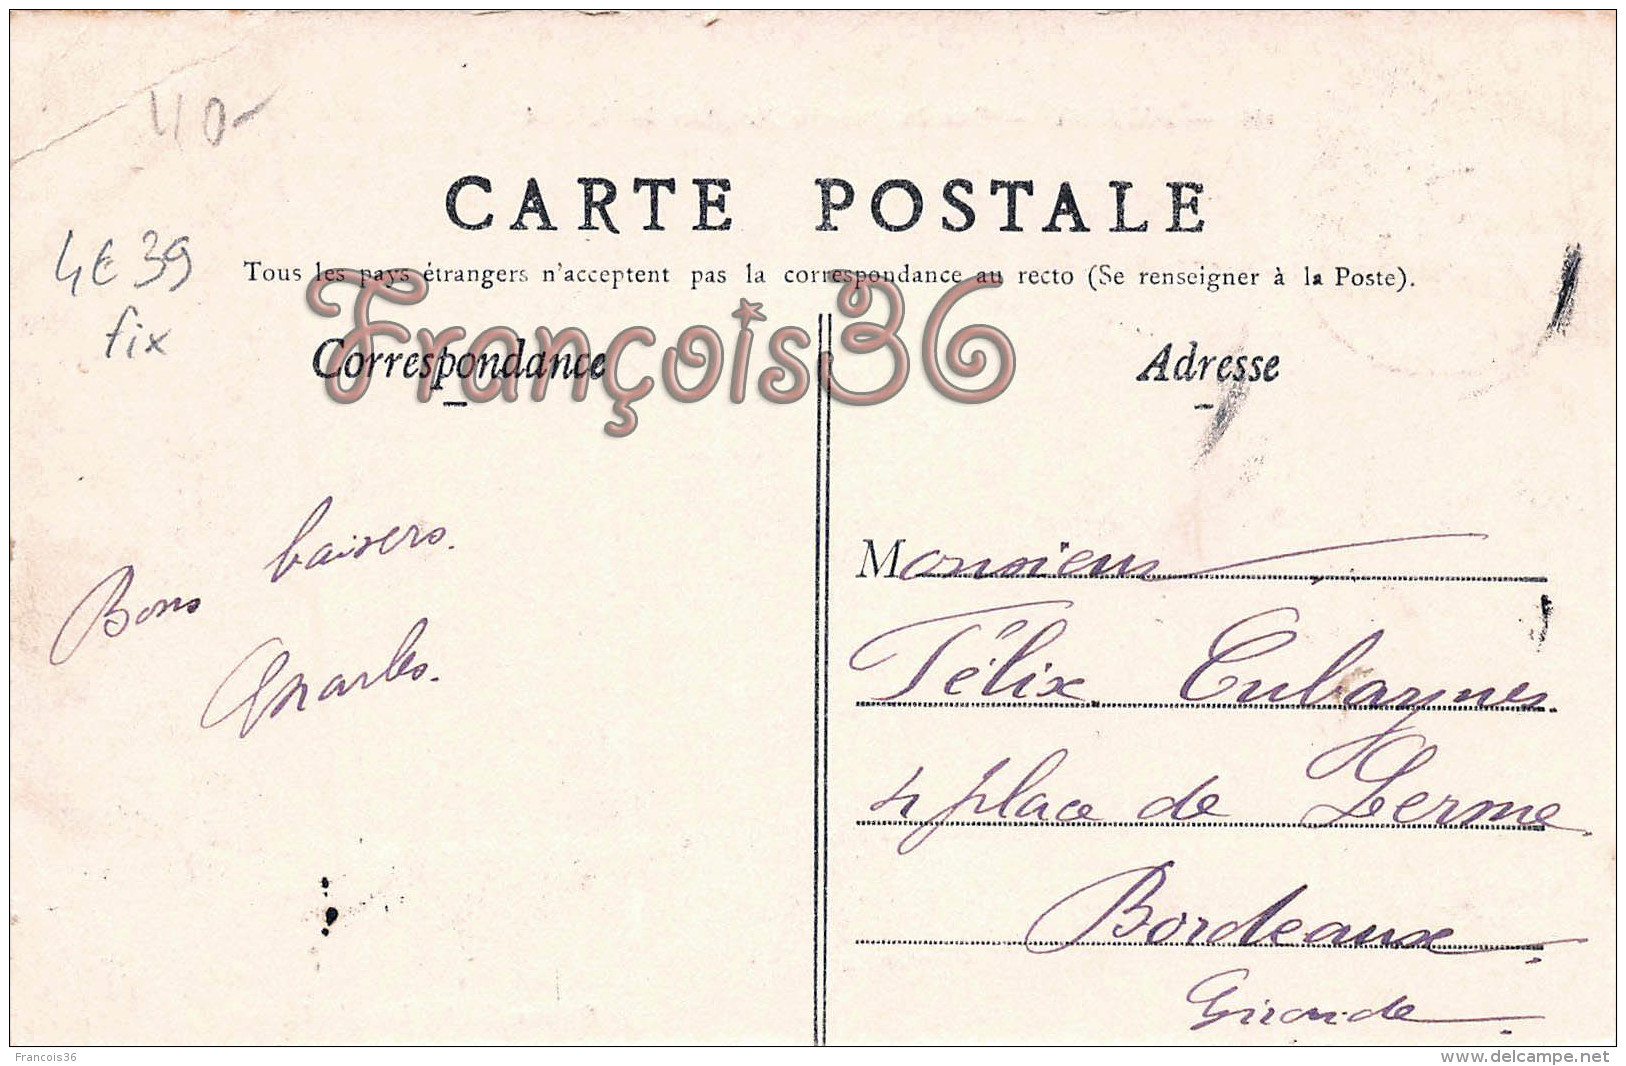 40-
CARTE POSTALE
4€39
fix
Tous les pays étrangers n'acceptent pas la correspondance au recto (Se renseigner à la Poste).
François36
Correspondance
Adresse
Bons baisers.
Charles.
Monsieur
Félix Cubaynes.
4 place de Lerme
Bordeaux
Gironde
Francois36
www.delcampe.net